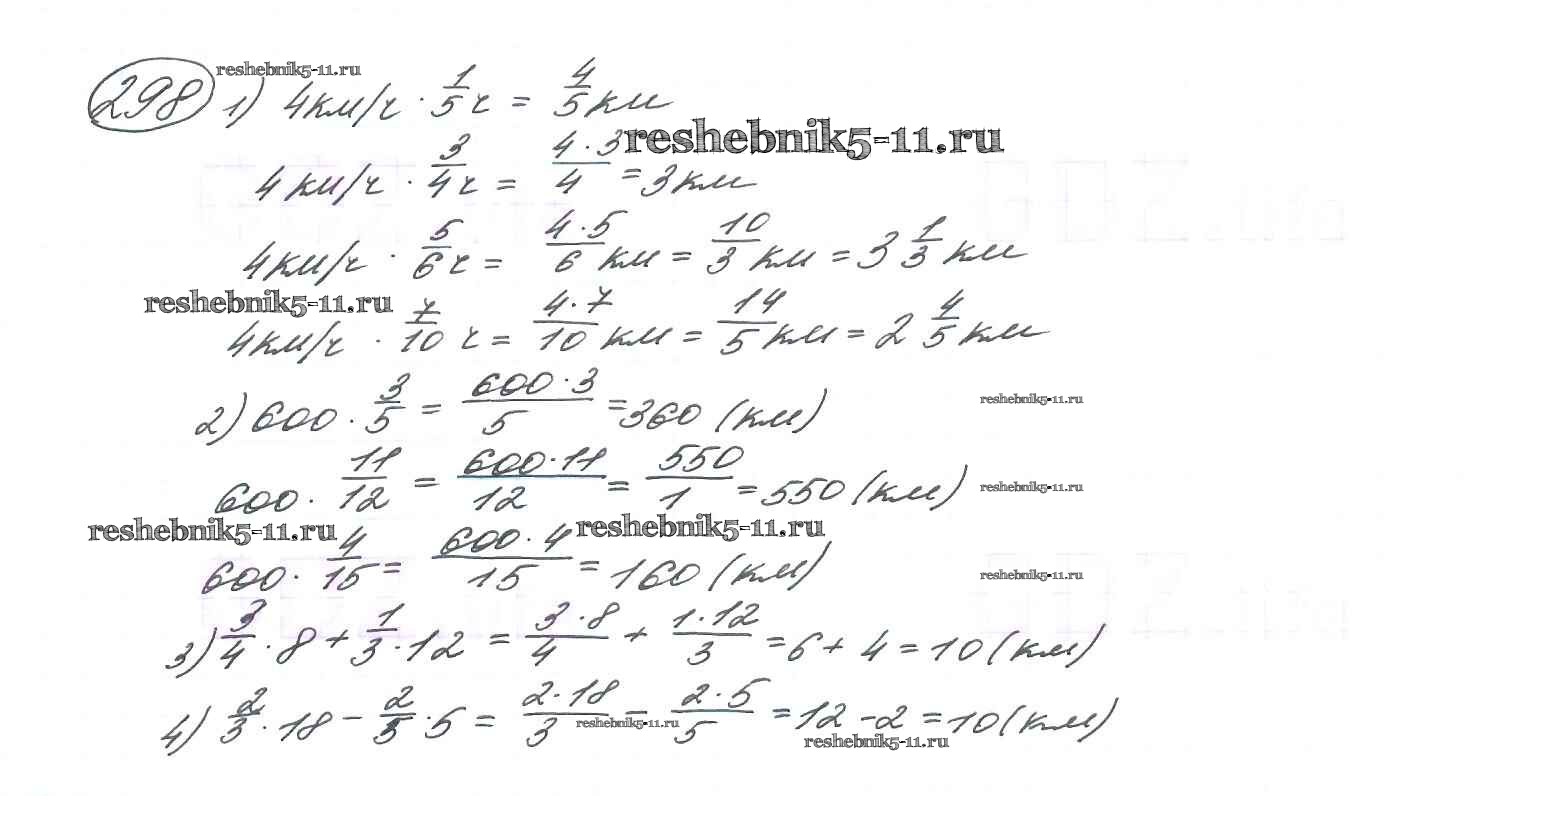 298 1) 4км/ч · 1/5 ч = 4/5 км
reshebnik5-11.ru
4км/ч · 3/4 ч = (4·3)/4 = 3км
reshebnik5-11.ru
4км/ч · 5/6 ч = (4·5)/6 км = 10/3 км = 3 1/3 км
reshebnik5-11.ru
4км/ч · 7/10 ч = (4·7)/10 км = 14/5 км = 2 4/5 км
2) 600 · 3/5 = (600·3)/5 = 360 (км)
reshebnik5-11.ru
600 · 11/12 = (600·11)/12 = 550/1 = 550 (км)
reshebnik5-11.ru
reshebnik5-11.ru reshebnik5-11.ru
600 · 4/15 = (600·4)/15 = 160 (км)
reshebnik5-11.ru
3) 3/4 · 8 + 1/3 · 12 = (3·8)/4 + (1·12)/3 = 6 + 4 = 10 (км)
4) 2/3 · 18 - 2/5 · 5 = (2·18)/3 - (2·5)/5 = 12 - 2 = 10 (км)
reshebnik5-11.ru
reshebnik5-11.ru